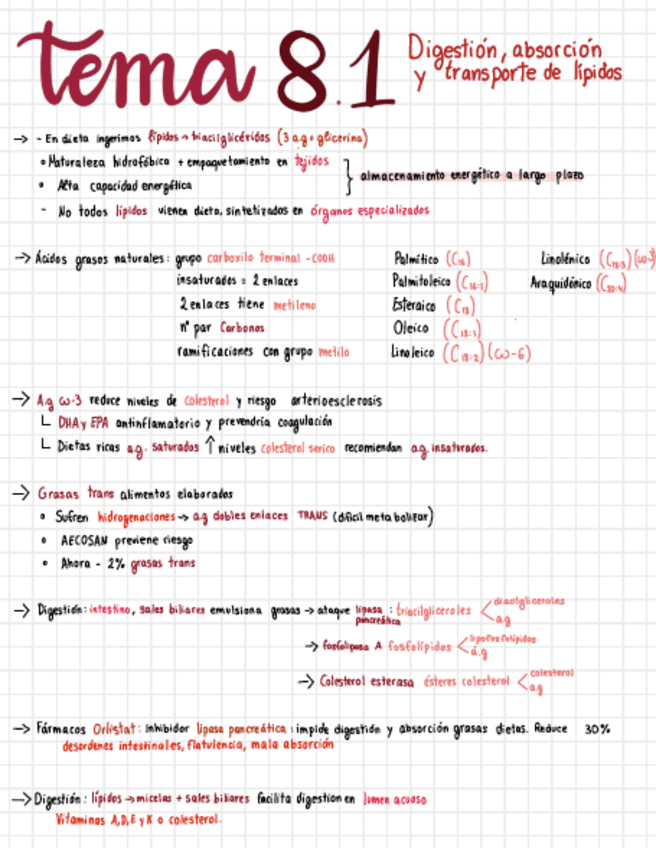 tema 8.1 Digestión, absorción
y transporte de lípidos
→ - En dieta ingerimos lípidos → triacilglicéridos (3 a.g + glicerina)
• Naturaleza hidrofóbica + empaquetamiento en tejidos
• Alta capacidad energética
almacenamiento energético a largo plazo
- No todos lípidos vienen dieta, sintetizados en órganos especializados
→ Ácidos grasos naturales: grupo carboxilo terminal -COOH
insaturados = 2 enlaces
2 enlaces tiene metileno
nº par Carbonos
ramificaciones con grupo metilo
Palmítico (C16)
Palmitoleico (C16:1)
Esteraico (C18)
Oleico (C18:1)
Linoleico (C18:2) (ω-6)
Linolénico (C18:3) (ω-3)
Araquidónico (C20:4)
→ A.g ω-3 reduce niveles de colesterol y riesgo arterioesclerosis
└ DHA y EPA antinflamatorio y prevendría coagulación
└ Dietas ricas a.g. saturados ↑ niveles colesterol serico recomiendan a.g. insaturados.
→ Grasas trans alimentos elaborados
• Sufren hidrogenaciones → a.g dobles enlaces TRANS (difícil metabolizar)
• AECOSAN previene riesgo
• Ahora - 2% grasas trans
→ Digestión: intestino, sales biliares emulsiona grasas → ataque lipasa pancreática : triacilgliceroles < diacilgliceroles
a.g
→ fosfolipasa A fosfolípidos < lipofosfolípidos
a.g
→ Colesterol esterasa ésteres colesterol < colesterol
a.g
→ Fármacos Orlistat: Inhibidor lipasa pancreática : impide digestión y absorción grasas dietas. Reduce 30%
desordenes intestinales, flatulencia, mala absorción
→ Digestión: lípidos → micelas + sales biliares facilita digestion en lumen acuoso
Vitaminas A, D, E y K o colesterol.